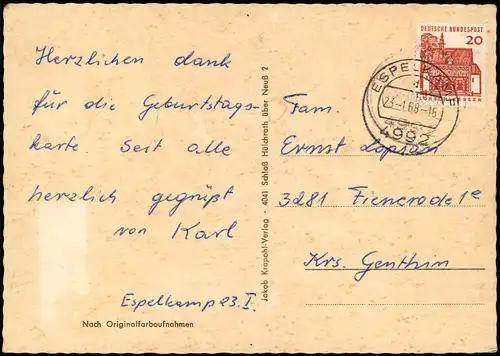 Herzlichen dank
für die Geburtstags-
karte. Seit alle
herzlich gegrüpt
von Karl
Espelkamp 23. I.
Nach Originalfarbaufnahmen
Jakob Krapohl-Verlag · 4041 Schloß Hülchrath über Neuß 2
DEUTSCHE BUNDESPOST
20
ESPELKAMP
23.-1.68-16
4992
Fam.
Ernst
3281
Krs. Genthin